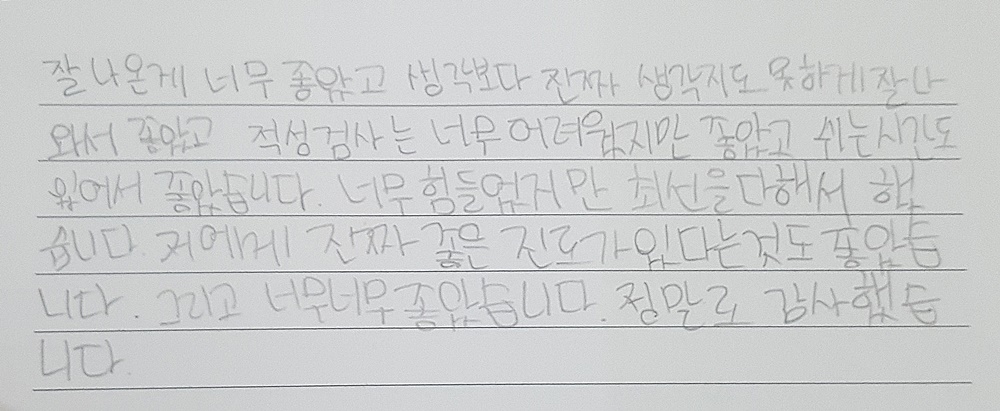 잘 나온게 너무 좋았고 생각보다 진짜 생각지도 못하게 잘 나
와서 좋았고 적성검사는 너무 어려웠지만 좋았고 쉬는시간도
있어서 좋았습니다. 너무 힘들었지만 최선을다해서 했
습니다. 저에게 진짜 좋은 진로가 있다는것도 좋았습
니다. 그리고 너무너무 좋았습니다. 정말로 감사했습
니다.